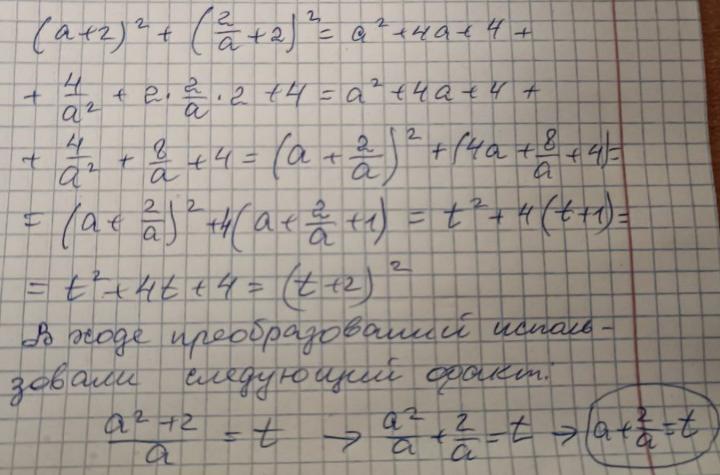 (a+2)² + (2/a + 2)² = a² + 4a + 4 +
+ 4/a² + 2 · 2/a · 2 + 4 = a² + 4a + 4 +
+ 4/a² + 8/a + 4 = (a + 2/a)² + (4a + 8/a + 4) =
= (a + 2/a)² + 4(a + 2/a + 1) = t² + 4(t+1) =
= t² + 4t + 4 = (t+2)²
В ходе преобразований исполь-
зовали следующий факт:
(a² + 2)/a = t → a²/a + 2/a = t → a + 2/a = t